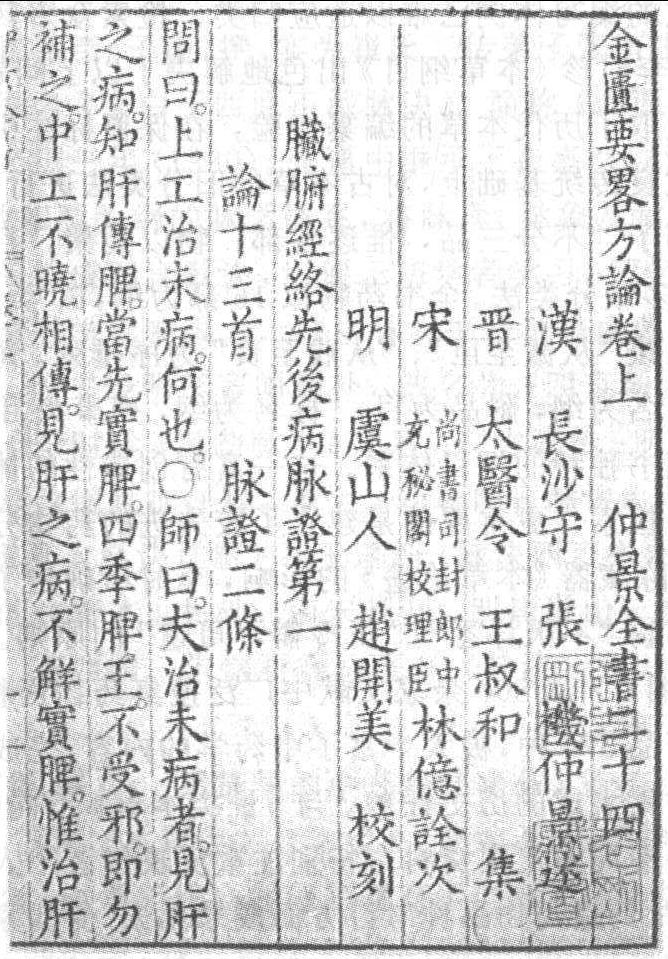 金匱要畧方論卷上 仲景全書二十四
漢 長沙守 張 機仲景述
晋 太醫令 王叔和 集
宋 尚書司封郎中充秘閣校理臣林億詮次
明 虞山人 趙開美 校刻
臟腑經絡先後病脉證第一
論十三首 脉證二條
問曰。上工治未病。何也。○師曰。夫治未病者。見肝
之病。知肝傳脾。當先實脾。四季脾王。不受邪。即勿
補之。中工不曉相傳。見肝之病。不解實脾。惟治肝